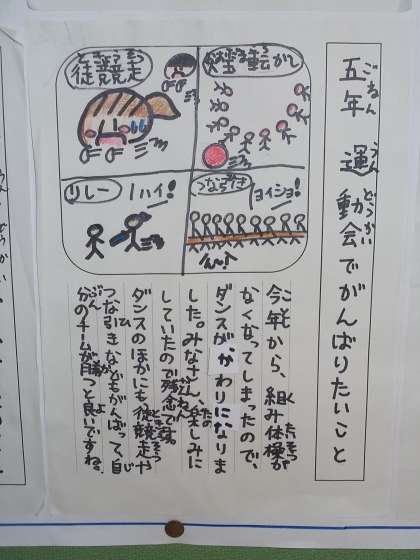 五年 運動会でがんばりたいこと
ごねん うんどうかい
徒競走
リレー
ハイ!
ヨイショ!
今年から、組み体操が
なくなってしまったので、
ダンスが、かわりになりま
した。みなさん、楽しみに
していたので残念です。
ダンスのほかにも徒競走や
つな引きなどもがんばって、自
分のチームが勝つと良いですね。